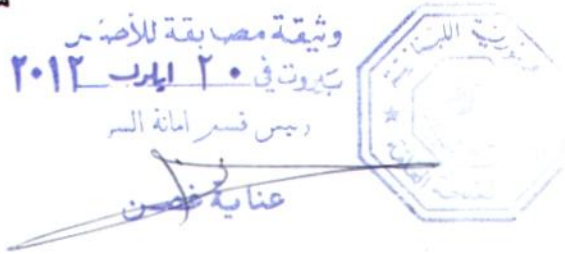 وثيقة مصابقة للأصل
بيروت في ٢٠ ايلول ٢٠١٢
رئيس قسم امانة السر
عناية غصن
الجمهورية اللبنانية